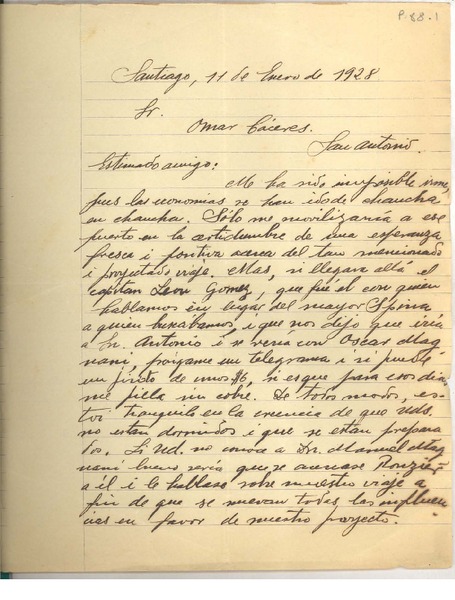 P 88.1
Santiago, 11 de Enero de 1928
Sr.
Omar Cáceres.
San Antonio.
Estimado amigo:
Me ha sido imposible irme,
pues las economías se han ido de chaucha
en chaucha. Sólo me movilizaría a ese
puerto en la certidumbre de una esperanza
fresca i positiva acerca del tan mencionado
i proyectado viaje. Mas, si llegara allá el
capitán León Gómez, que fué el con quien
hablamos en lugar del mayor Spina
a quien buscábamos, i que nos dijo que iría
a Sn. Antonio i se vería con Oscar Mag
nani, póngame un telegrama i si puede
un jirito de unos $6, si es que para esos días
me pilla sin cobre. De todos modos, es-
toi tranquilo en la creencia de que uds.
no están dormidos i que se están preparan
do. Si Ud. no conoce a Dn. Manuel Mag
nani bueno sería que se acercase
a él i le hablase sobre nuestro viaje a
fin de que se muevan todas las influen
cias en favor de nuestro proyecto.